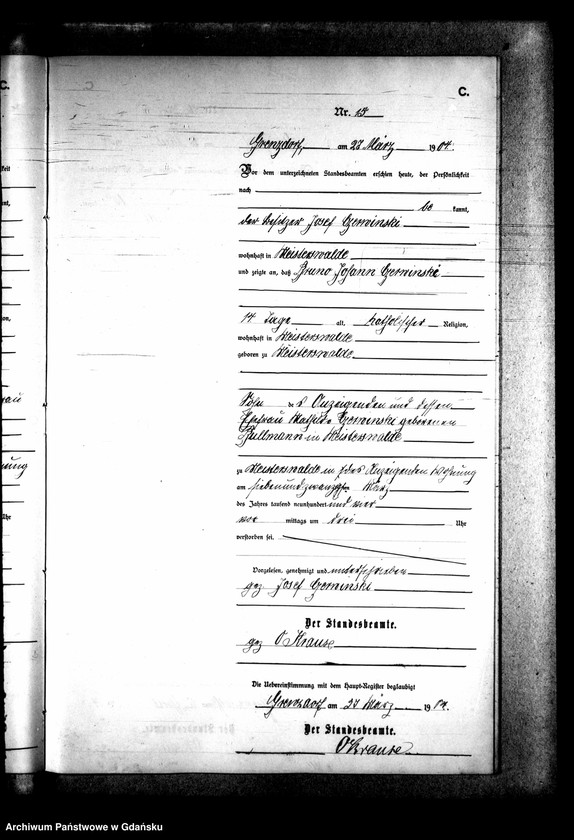 C.
C.
Nr. 15
Grenzdorf, am 27 März 1904.
Vor dem unterzeichneten Standesbeamten erschien heute, der Persönlichkeit
nach
be kannt,
der Besitzer Josef Czerwinski
wohnhaft in Meisterswalde
und zeigte an, daß Bruno Johann Czerwinski
14 Tage alt, katholischer Religion,
wohnhaft in Meisterswalde
geboren zu Meisterswalde
Sohn des Anzeigenden und dessen
Ehefrau Mathilde Czerwinski geborenen
in Meisterswalde
zu Meisterswalde in des Anzeigenden Wohnung
am siebenundzwanzigsten März
des Jahres tausend neunhundert und vier
vor mittags um drei Uhr
verstorben sei.
Vorgelesen, genehmigt und unterschrieben
gez Josef Czerwinski
Der Standesbeamte.
gez O Krause
Die Uebereinstimmung mit dem Haupt-Register beglaubigt
Grenzdorf am 27 März 1904.
Der Standesbeamte.
O Krause
Archiwum Państwowe w Gdańsku